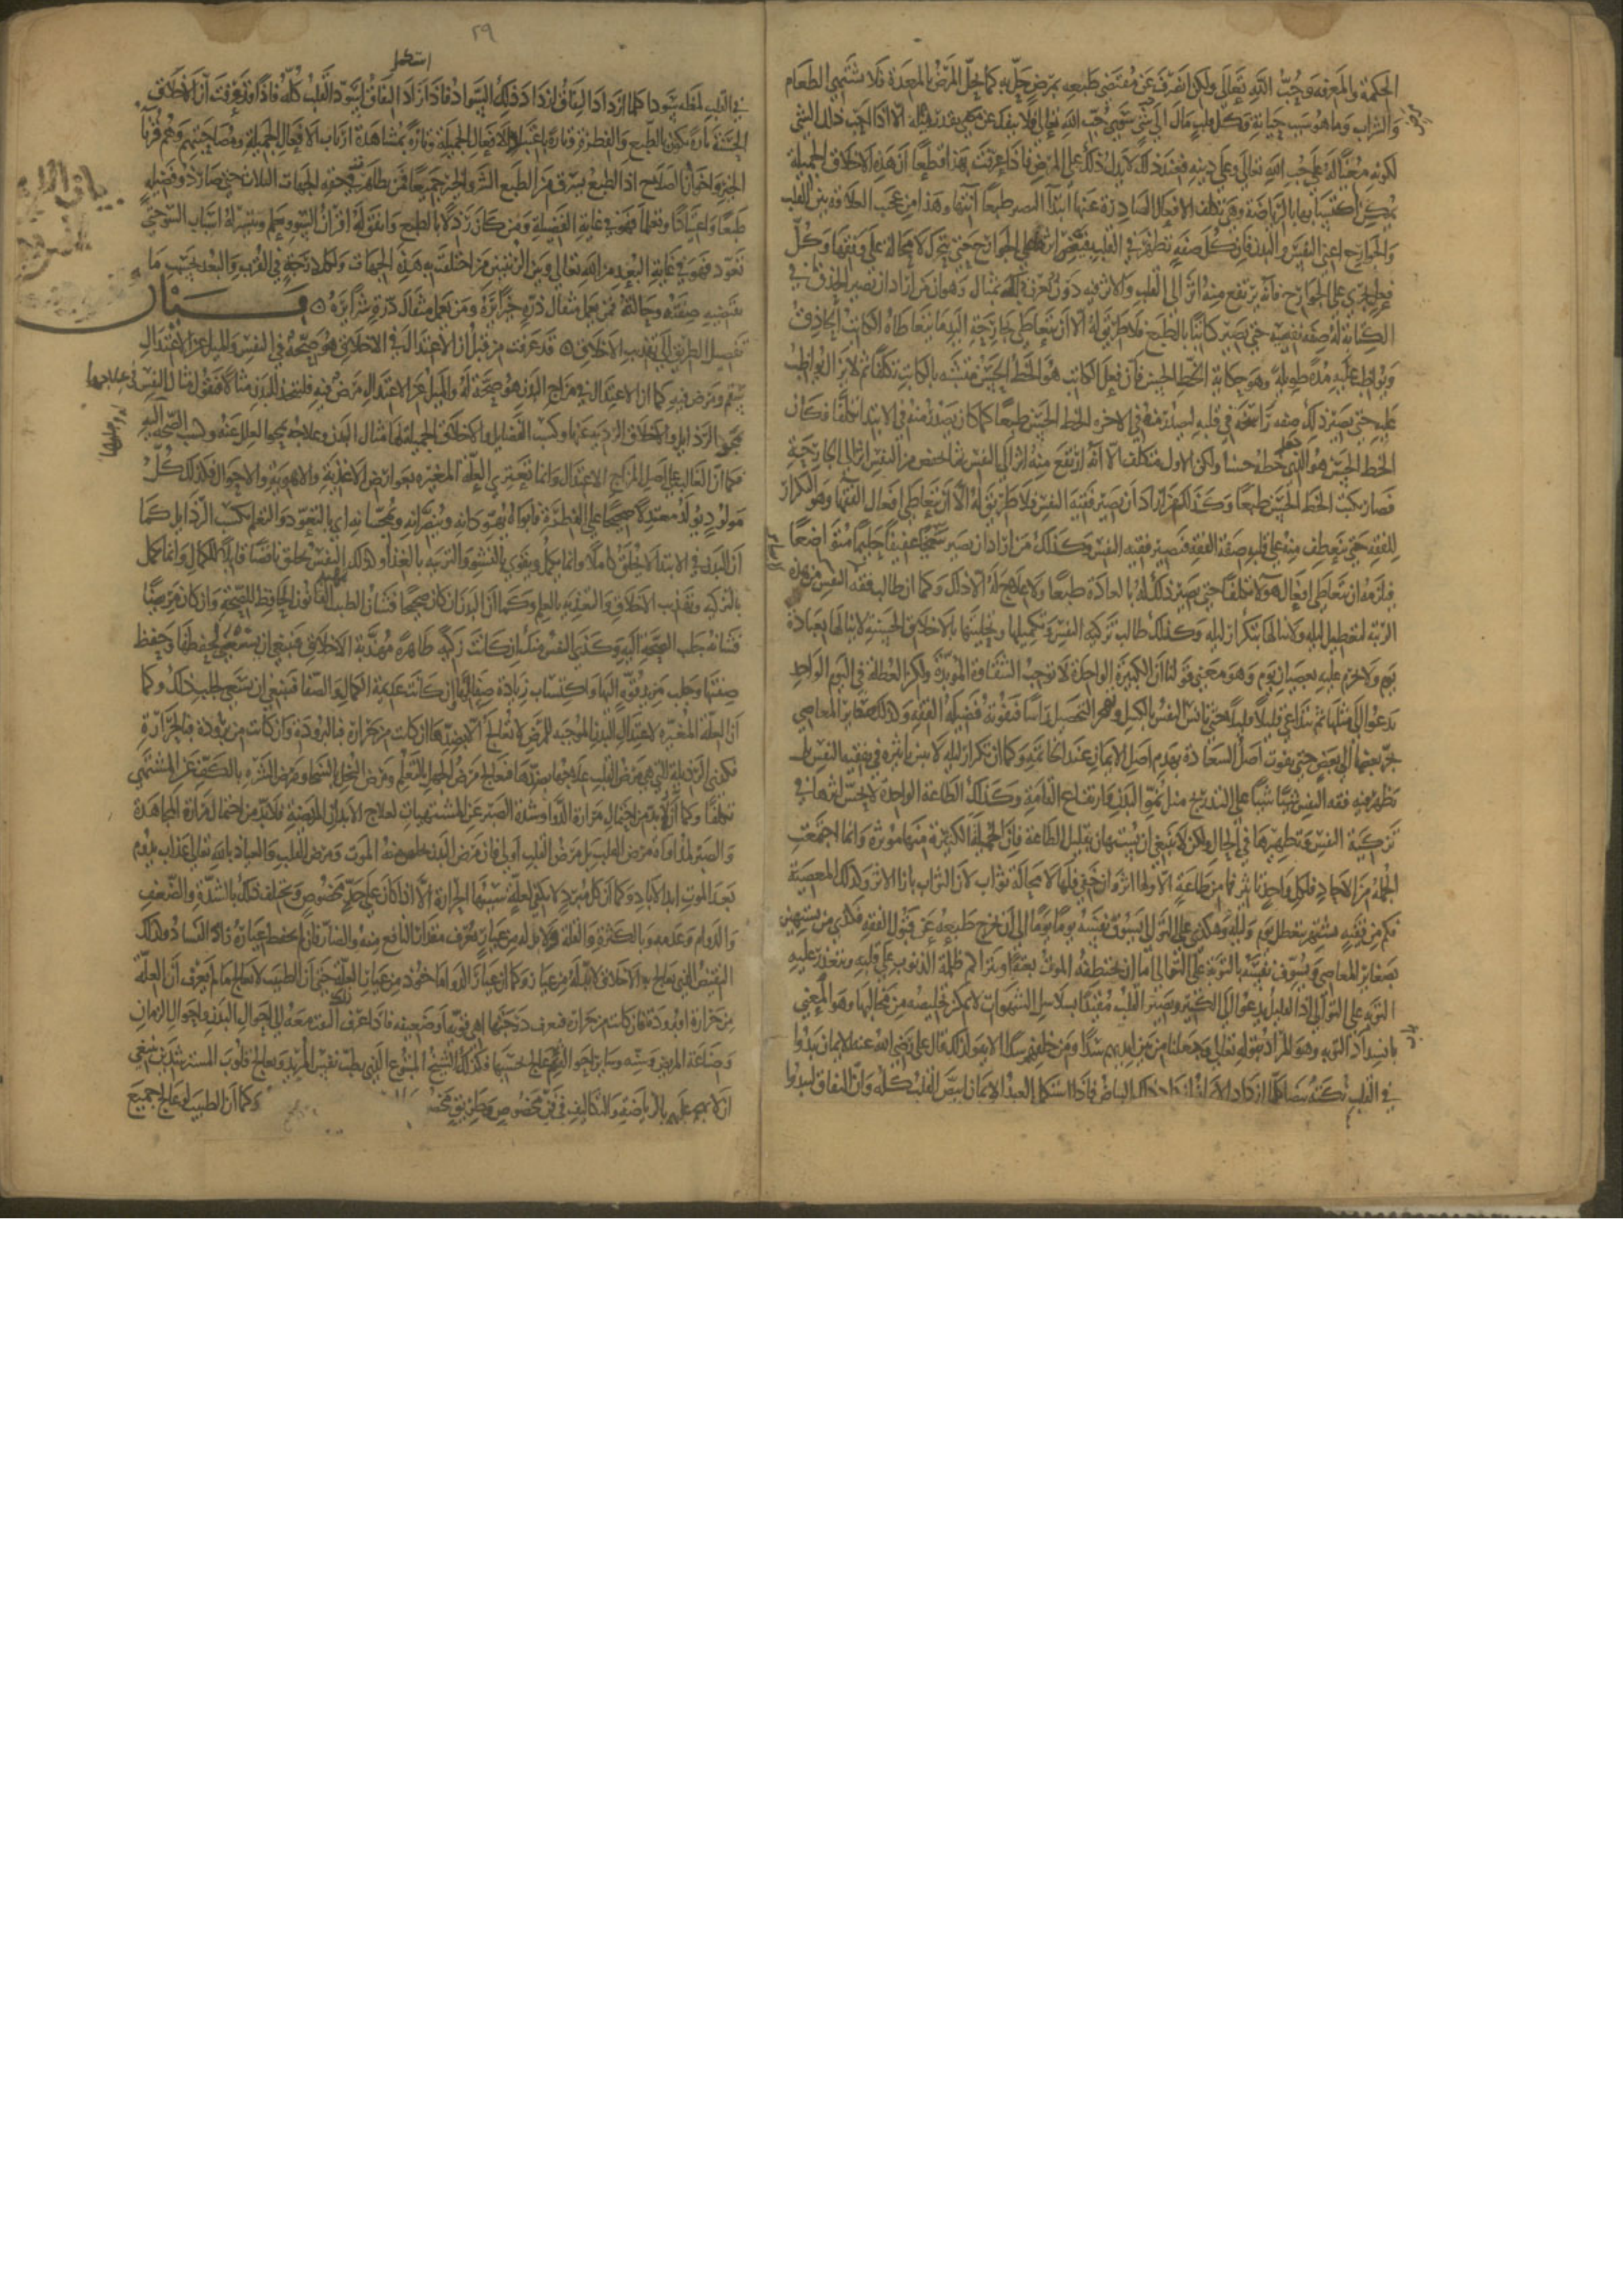 الحكمة والمعرفة وحب الله تعالى ولكن انصرف عن مقتضى طبعه بمرض حل به كما يحل المرض بالمعدة فلا تشتهي الطعام
والشراب وما هو سبب حياته وكل قلب مال الى شي سوى حب الله تعالى فلا ينفك عن مرض بقدر ميله الا اذا احب ذلك الشي
لكونه معينا له على حب الله تعالى وعلى دينه فعند ذلك لا يدل ذلك على المرض فاذا عرفت بهذا قطعا ان هذه الاخلاق الجميلة
يمكن اكتسابها بالرياضة وهي تكلف الافعال الصادرة عنها ابتدا لتصير طبعا انتها وهذا من عجيب العلاقة بين القلب
والجوارح اعني النفس والبدن فان كل صفة تظهر في القلب يفيض اثرها على الجوارح حتى تتحرك لا محالة على وفقها وكل
فعل يجري على الجوارح فانه يرتفع منه اثر الى القلب والامر فيه دور ويعرف ذلك بمثال وهو ان من اراد ان يصير الحذق في
الكتابة له صفة نفسية حتى يصير كاتبا بالطبع فلا طريق له الا ان يتعاطى بجارحة اليد ما يتعاطاه الكاتب الحاذق
ويواظب عليه مدة طويلة وهو حكاية الخط الحسن فان فعل الكاتب هو الخط الحسن فيتشبه بالكاتب تكلفا ثم لا يزال يواظب
عليه حتى يصير ذلك صفة راسخة في قلبه فيصدر منه في الاخرة الخط الحسن طبعا كما كان يصدر منه في الابتدا تكلفا فكان
الخط الحسن هو الذي جعل خطه حسنا ولكن الاول متكلف الا انه ارتفع منه اثر الى النفس ثم انخفض من النفس اثر الى الجارحة
فصار يكتب الخط الحسن طبعا وكذلك من اراد ان يصير فقيه النفس فلا طريق له الا ان يتعاطى افعال الفقها وهو التكرار
للفقه حتى ينعطف منه على قلبه صفة الفقه فيصير فقيه النفس وكذلك من اراد ان يصير سخيا عفيفا حليما متواضعا
فيلزمه ان يتعاطى افعال هؤلا تكلفا حتى يصير ذلك له بالعادة طبعا ولا علاج له الا ذلك وكما ان طالب فقه النفس من هذه
الرتبة لتعطيل ليله ولا ينالها بتكرار ليله وكذلك طالب تزكيه النفس وتكميلها وتحليتها بالاخلاق الحسنة لا ينالها بعبادة
يوم ولا يحرم عليه بعصيان يوم وهو معنى قولنا ان الكبيرة الواحدة لا توجب الشقاوة المؤبدة ولكن العطلة في اليوم الواحد
يدعو الى مثلها ثم يتداعى قليلا قليلا حتى تانس النفس الكسل وتهجر التحصيل راسا فتفوته فضيلة الفقه وكذلك صغاير المعاصي
يجر بعضها الى بعض حتى يفوت اصل السعادة بهدم اصل الايمان عند الخاتمة وكما ان تكرار ليله لا يبين تاثيره في تفقيه النفس بل
يظهر فيه فقه النفس شيا شيا على التدريج مثل نمو البدن وارتفاع القامة وكذلك الطاعة الواحدة لا يحس اثرها في
تزكية النفس وتطهيرها في الحال ولكن لا ينبغي ان يستهان بقليل الطاعة فان الجملة الكثيرة منها موثرة وانما اجتمعت
الجملة من الاحاد فلكل واحد تاثير فما من طاعة الا ولها اثر وان خفي فلها لا محالة ثواب لان الثواب بازا الاثر وكذلك المعصية
فكم من فقيه مستهين بتعطيل يوم وليلة وهكذا على التوالي يسوف نفسه يوما يوما الى ان يخرج طبعه عن قبول الفقه فكذى من يستهين
بصغاير المعاصي ويسوف نفسه بالتوبة على التوالي اما ان يختطفه الموت بغتة او تتراكم ظلمة الذنوب على قلبه وتتعذر عليه
التوبة على التوالي اذ القليل يدعو الى الكثير ويصير القلب مقيدا بسلاسل الشهوات لا يمكن تخليصه من مخالبها وهو المعني
بانسداد التوبة وهو المراد بقوله تعالى وجعلنا من بين ايديهم سدا ومن خلفهم سدا الاية ولذلك قال علي رضي الله عنه الايمان يبدوا
في القلب نكتة بيضا كلما ازداد الايمان ازداد ذلك البياض فاذا استكمل العبد الايمان ابيض القلب كله وان النفاق ليبدوا
٢٩
استكمل
في القلب نكتة سودا كلما ازداد النفاق ازداد ذلك السواد فاذا ازداد النفاق اسود القلب كله فاذا قد عرفت ان الاخلاق
الحسنة تارة تكون بالطبع والفطرة وتارة باعتياد الافعال الجميلة وتارة بمشاهدة ارباب الافعال الجميلة ومصاحبتهم وهم قرنا
الخير واخوان الصلاح اذ الطبع يسرق من الطبع الشر والخير جميعا فمن تظاهرت في حقه الجهات الثلاث حتى صار ذو فضيلة
طبعا واعتيادا وتعلما فهو في غاية الفضيلة ومن كان رذلا بالطبع واتفق له اقران السو وتعلم منهم وتيسر له اسباب الشر حتى
تعود فهو في غاية البعد من الله تعالى وبين الرتبتين من اختلفت به هذه الجهات ولكل درجة في القرب والبعد بحسب ما
تقتضيه صفته وحالته فمن يعمل مثقال ذرة خيرا يره ومن يعمل مثقال ذرة شرا يره
بيان
تفصيل الطريق الى تهذيب الاخلاق قد عرفت من قبل ان الاعتدال في الاخلاق هو صحة في النفس والميل عن الاعتدال
سقم ومرض فيه كما ان الاعتدال في مزاج البدن هو صحة له والميل عن الاعتدال مرض فيه فلنتخذ البدن مثالا فنقول مثال النفس في علاجها
بمحو الرذايل والاخلاق الردية عنها وكسب الفضايل والاخلاق الجميلة لها مثال البدن في علاجه بمحو العلل عنه وكسب الصحة له
فكما ان الغالب على اصل المزاج الاعتدال وانما تعتري العلة المغيرة بعوارض الاغذية والاهوية والاحوال فكذلك كل
مولود يولد معتدلا صحيحا على الفطرة فابواه يهودانه وينصرانه ويمجسانه اي بالتعود والتعلم تكتسب الرذايل كما
ان البدن في الابتدا لا يخلق كاملا وانما يكمل ويقوى بالنشو والتربية بالغذا وكذلك النفس تخلق ناقصا قابلة للكمال وانما تكمل
بالتزكية وتهذيب الاخلاق والتغذية بالعلم وكما ان البدن ان كان صحيحا فشان الطبيب القانون الحافظ للصحة وان كان مريضا
فشانه جلب الصحة اليه وكذى النفس منك ان كانت زكية طاهرة مهذبة الاخلاق فينبغي ان تسعى لحفظها وحفظ
صحتها وجلب مزيد قوة اليها واكتساب زيادة صفايها وان كانت عديمة الكمال والصفا فينبغي ان تسعى لجلب ذلك وكما
ان العلة المغيرة لاعتدال البدن الموجبة للمرض لا تعالج الا بضدها ان كانت من حرارة فبالبرودة وان كانت من برودة فبالحرارة
فكذى الرذيلة التي هي مرض القلب علاجها بضدها فيعالج مرض الجهل بالتعلم ومرض البخل بالسخا ومرض الشره بالكف عن المشتهى
تكلفا وكما انه لا بد من احتمال مرارة الدوا وشدة الصبر عن المشتهيات لعلاج الابدان المريضة فلا بد من احتمال مرارة المجاهدة
والصبر لمداواة مرض القلب بل مرض القلب اولى فان مرض البدن يخلص منه الموت ومرض القلب والعياذ بالله تعالى عذاب يدوم
بعد الموت ابد الاباد وكما ان كل مبرد لا يكفي لعلة سببها الحرارة الا اذا كان على حد مخصوص ويختلف ذلك بالشدة والضعف
والدوام وعدمه وبالكثرة والقلة ولا بد له من عيار يعرف مقدار النافع منه والضار فان لم يحفظ عياره زاد الفساد وكذلك
النقيض الذي يعالج به الاخلاق لا بد له من عيار وكما ان عيار الدوا ماخوذ من عيار العلة حتى ان الطبيب لا يعالج ما لم يعرف ان العلة
من حرارة او برودة فان كانت من حرارة فيعرف درجتها اهي قوية ام ضعيفة فاذا عرف ذلك التفت معه الى احوال البدن واحوال الزمان
وصناعة المريض وسنه وساير احواله ثم يعالج بحسبها فكذلك الشيخ المتبوع الذي يطب نفس المريد ويعالج قلوب المسترشدين ينبغي
ان لا يهجم عليهم بالرياضة والتكاليف في فن مخصوص وطريق مخصوص وكما ان الطبيب لو عالج جميع